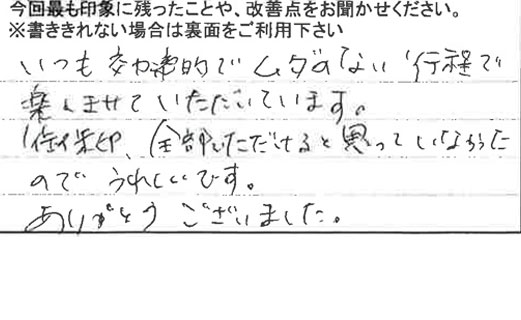 今回最も印象に残ったことや、改善点をお聞かせください。
※書ききれない場合は裏面をご利用下さい
いつも効率的でムダのない行程で
楽しませていただいています。
御朱印、全部いただけると思っていなかった
のでうれしいです。
ありがとうございました。